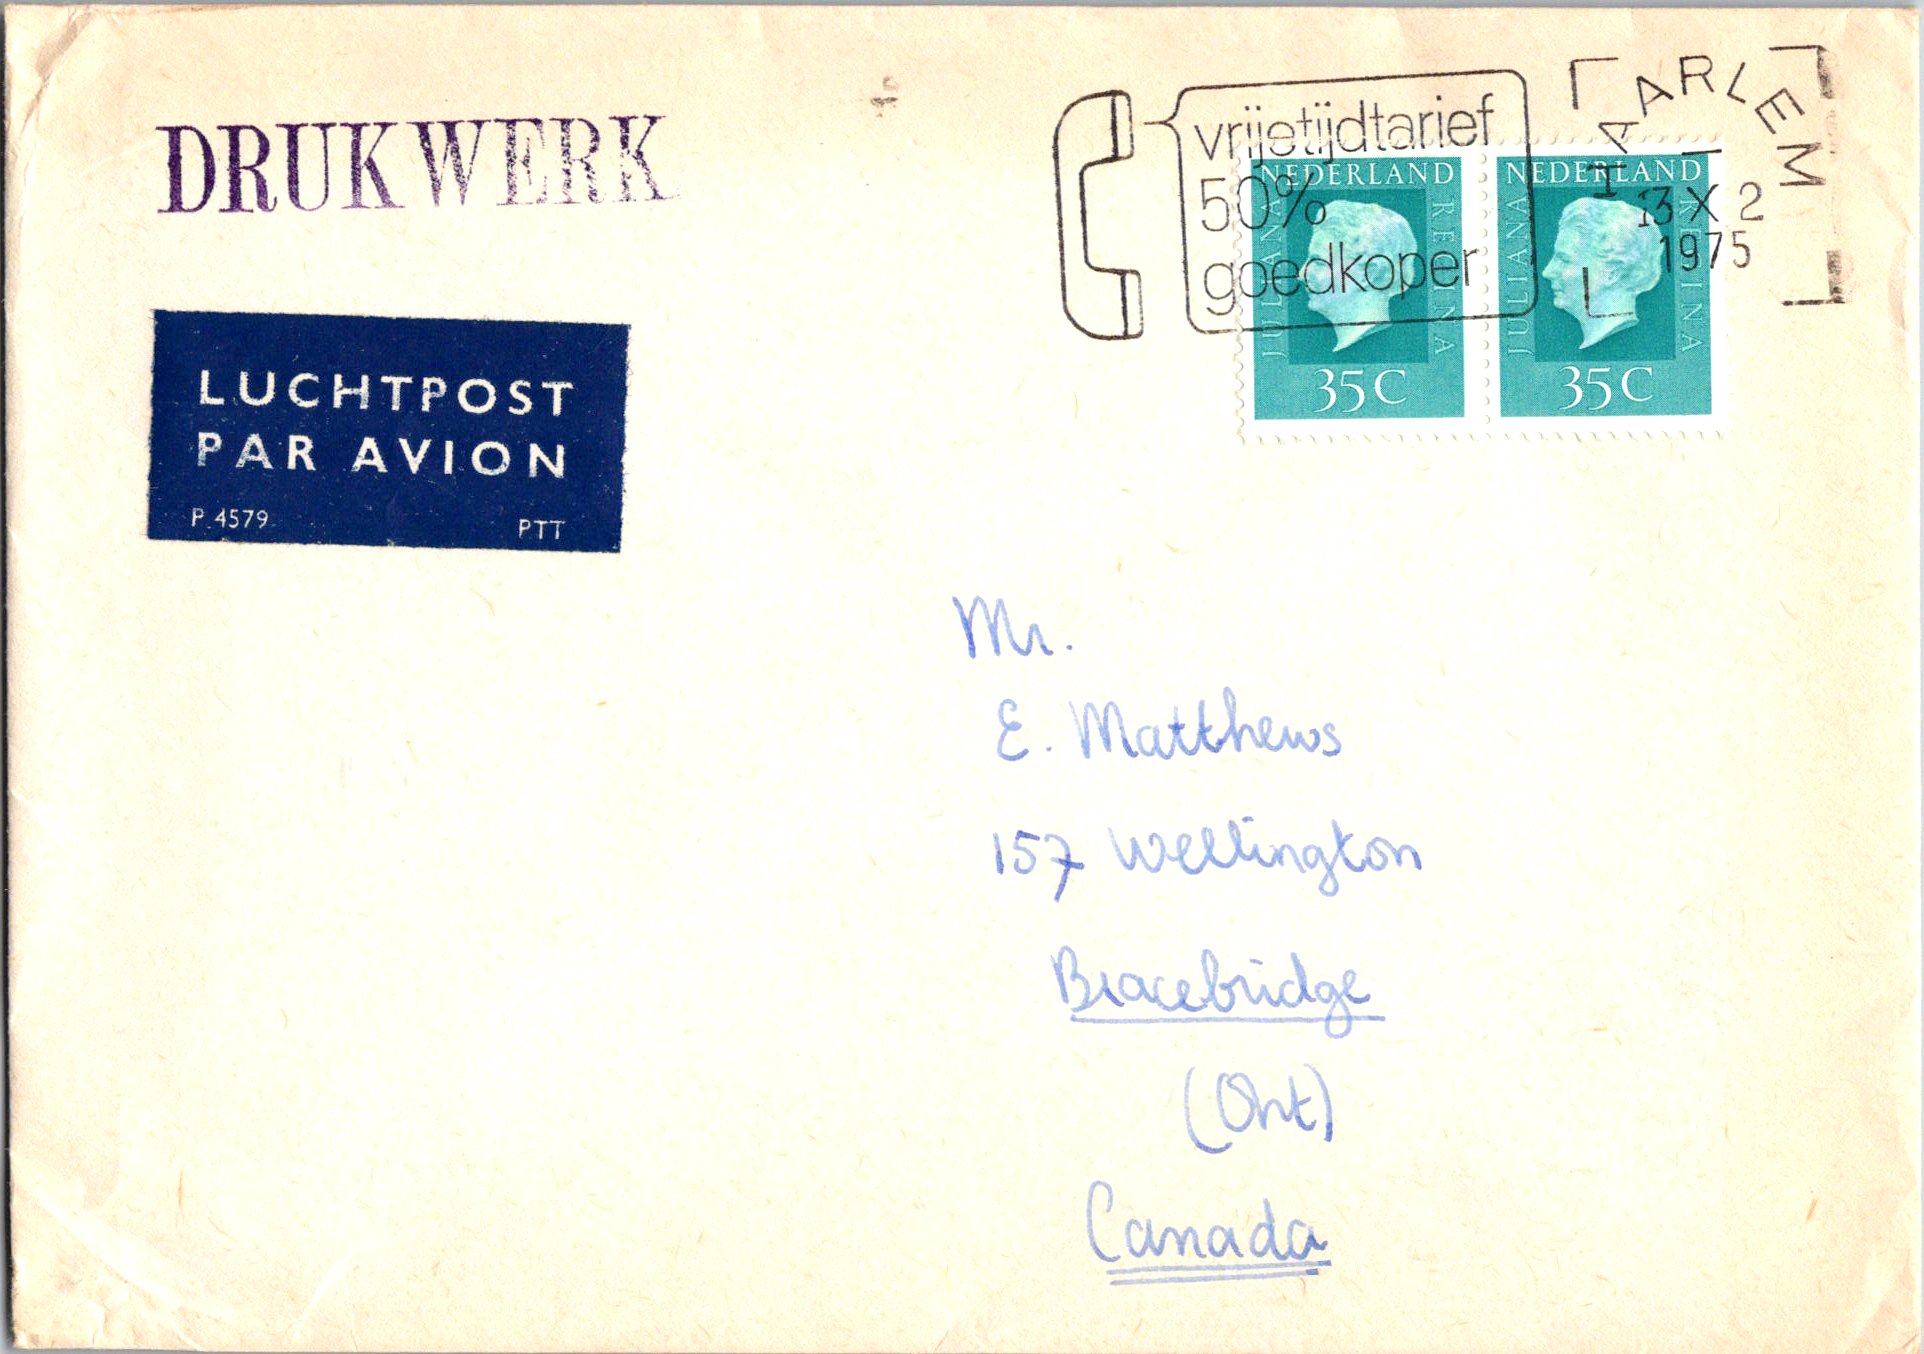 DRUKWERK
LUCHTPOST
PAR AVION
P. 4579 PTT
vrijetijdtarief
50%
goedkoper
HAARLEM
13 X 2
1975
NEDERLAND
JULIANA REGINA
35C
NEDERLAND
JULIANA REGINA
35C
Mr.
E. Matthews
157 Wellington
Bracebridge
(Ont)
Canada